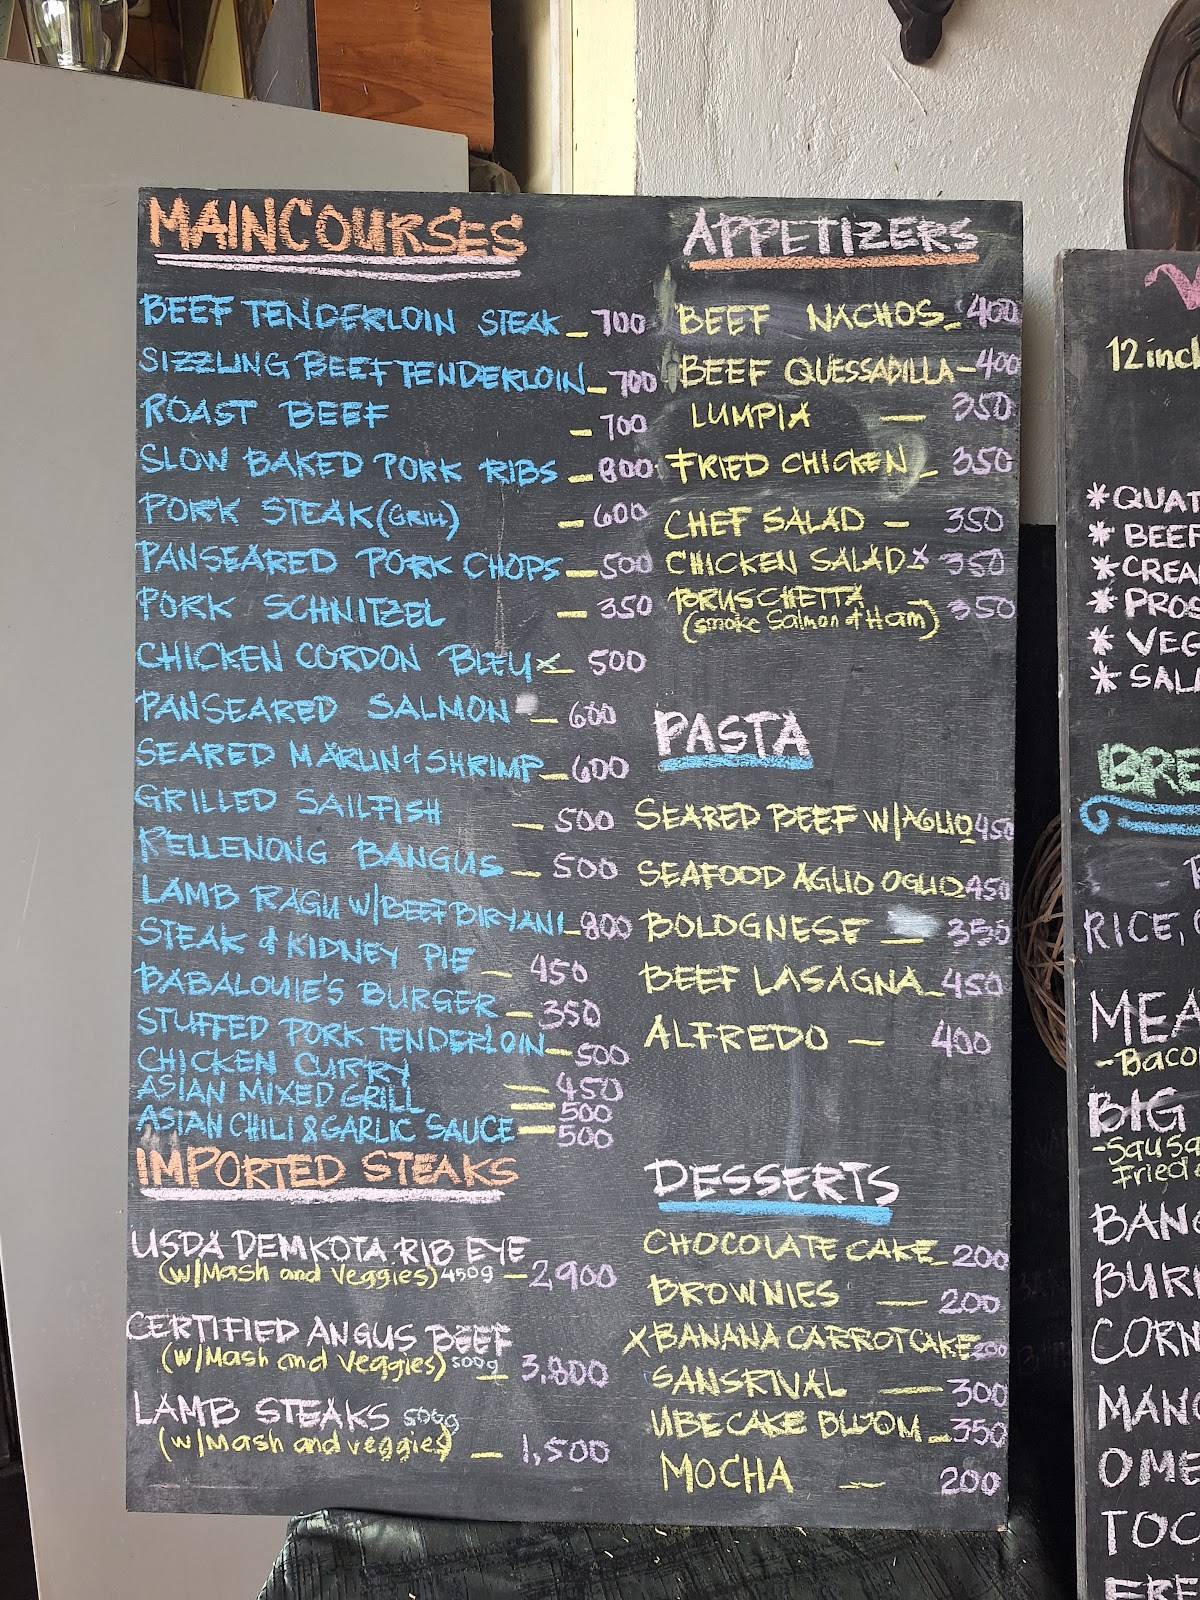 MAINCOURSES
BEEF TENDERLOIN STEAK - 700
SIZZLING BEEF TENDERLOIN - 700
ROAST BEEF - 700
SLOW BAKED PORK RIBS - 800
PORK STEAK (GRILL) - 600
PANSEARED PORK CHOPS - 500
PORK SCHNITZEL - 350
CHICKEN CORDON BLEU x - 500
PANSEARED SALMON - 600
SEARED MARLIN & SHRIMP - 600
GRILLED SAILFISH - 500
RELLENONG BANGUS - 500
LAMB RAGU W/BEEF BIRYANI - 800
STEAK & KIDNEY PIE - 450
BABALOUIE'S BURGER - 350
STUFFED PORK TENDERLOIN - 500
CHICKEN CURRY - 450
ASIAN MIXED GRILL - 500
ASIAN CHILI & GARLIC SAUCE - 500
IMPORTED STEAKS
USDA DEMKOTA RIB EYE
(w/Mash and Veggies) 450g - 2,900
CERTIFIED ANGUS BEEF
(w/Mash and Veggies) 500g - 3,800
LAMB STEAKS 500g
(w/Mash and veggies) - 1,500
APPETIZERS
BEEF NACHOS - 400
BEEF QUESSADILLA - 400
LUMPIA - 350
FRIED CHICKEN - 350
CHEF SALAD - 350
CHICKEN SALAD x - 350
BRUSCHETTA
(smoke Salmon & Ham) - 350
PASTA
SEARED BEEF W/AGLIO 450
SEAFOOD AGLIO OGLIO 450
BOLOGNESE - 350
BEEF LASAGNA - 450
ALFREDO - 400
DESSERTS
CHOCOLATE CAKE - 200
BROWNIES - 200
X BANANA CARROT CAKE 200
SANSRIVAL - 300
UBE CAKE BLOOM - 350
MOCHA - 200
12 inc
* QUAT
* BEEF
* CREA
* PROS
* VEG
* SAL
BRE
RICE,
MEA
- Baco
BIG
- Sausa
Fried
BANG
BUR
CORN
MANG
OME
TOC
FRE